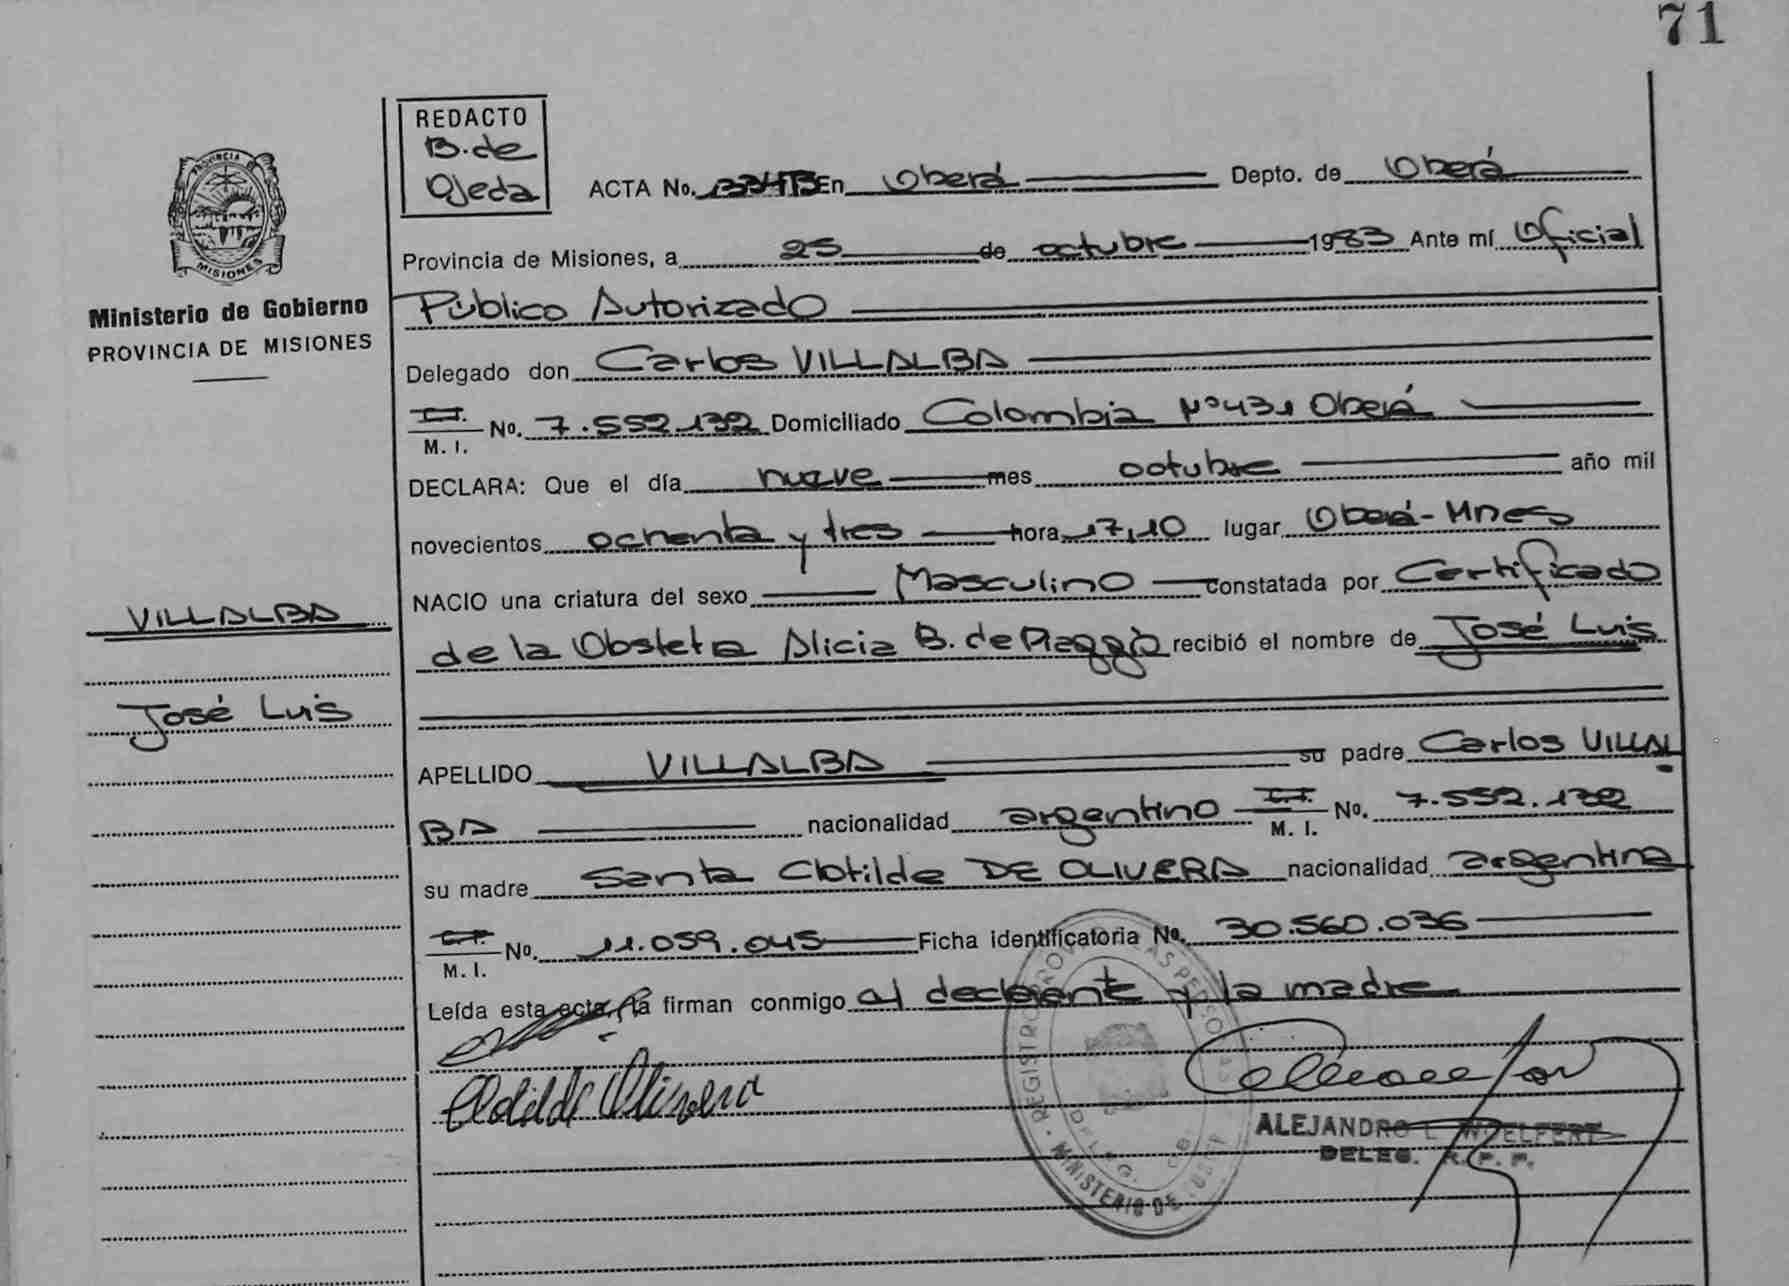 71
REDACTO
B. de
Ojeda
ACTA No. En Oberá Depto. de Oberá
PROVINCIA DE
MISIONES
Ministerio de Gobierno
PROVINCIA DE MISIONES
Provincia de Misiones, a 25 de octubre 1983 Ante mí Oficial
Público Autorizado
Delegado don Carlos VILLALBA
C.I.
M. I. No. 7.552.132 Domiciliado Colombia Nº431 Oberá
DECLARA: Que el día nueve mes octubre año mil
novecientos ochenta y tres hora 17,10 lugar Oberá-Mnes
NACIO una criatura del sexo Masculino constatada por Certificado
de la Obsteta Alicia B. de recibió el nombre de José Luis
VILLALBA
José Luis
APELLIDO VILLALBA su padre Carlos VILLAL
BA nacionalidad argentino C.I. M. I. No. 7.552.132
su madre Santa Clotilde DE OLIVERA nacionalidad argentina
C.I.
M. I. No. 11.059.045 Ficha identificatoria No. 30.560.036
Leída esta acta, la firman conmigo el declarante y la madre
Clotilde Olivera
ALEJANDRO L. WOELFERT
DELEG. R. P. P.
REGISTRO PROV. LAS PERSONAS
MINISTERIO DE